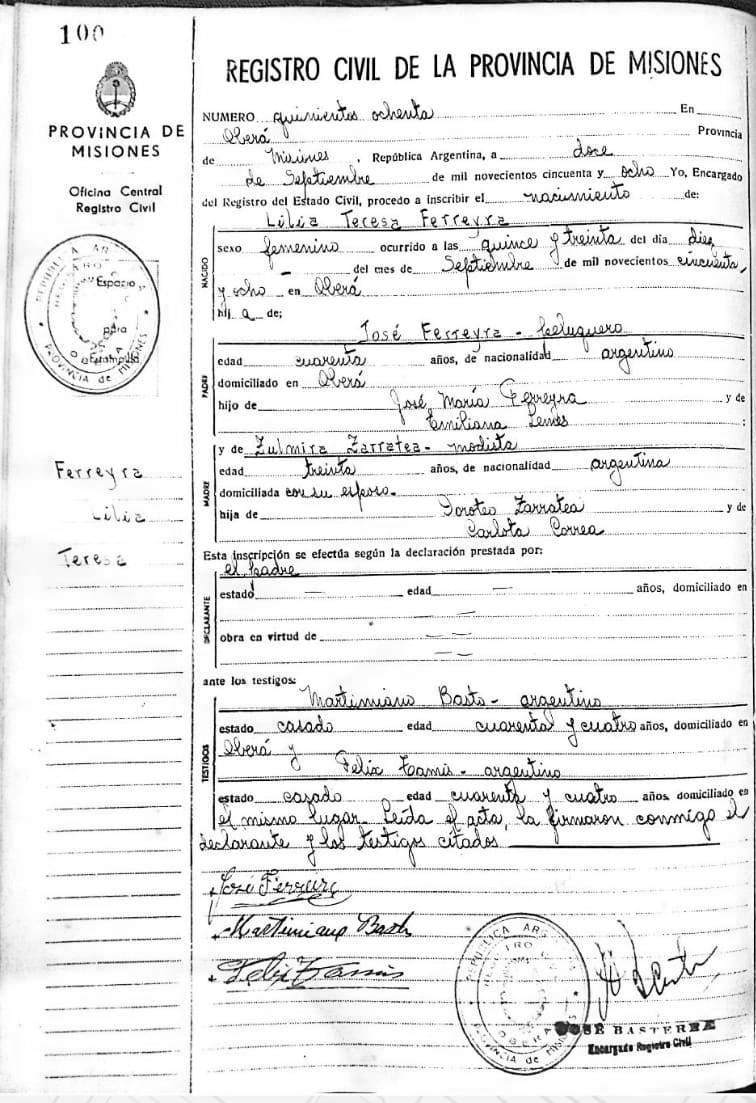 100
PROVINCIA DE
MISIONES
Oficina Central
Registro Civil
REPUBLICA AR
REGISTRO
Espacio
para
Estampilla
OBERA
PROVINCIA de MISIONES
Ferreyra
Lilia
Teresa
REGISTRO CIVIL DE LA PROVINCIA DE MISIONES
NUMERO quinientos ochenta En
Oberá Provincia
de Misiones, República Argentina, a doce
de Septiembre de mil novecientos cincuenta y ocho Yo, Encargado
del Registro del Estado Civil, procedo a inscribir el nacimiento de:
Lilia Teresa Ferreyra
NACIDO
sexo femenino ocurrido a las quince y treinta del día diez
— del mes de Septiembre de mil novecientos cincuenta
y ocho en Oberá
hij a de;
PADRE
José Ferreyra - peluquero
edad cuarenta años, de nacionalidad argentino
domiciliado en Oberá
hijo de José María Ferreyra y de
Emiliana Lemes ;
MADRE
y de Zulmira Zarratea - modista
edad treinta años, de nacionalidad argentina
domiciliada con su esposo.
hija de Doroteo Zarratea y de
Carlota Correa
Esta inscripción se efectúa según la declaración prestada por:
el padre
DECLARANTE
estado — edad — años, domiciliado en
—
obra en virtud de —
—
ante los testigos:
TESTIGOS
Martimiano Basto - argentino
estado casado edad cuarenta y cuatro años, domiciliado en
Oberá y
Felix Tamis - argentino
estado casado edad cuarenta y cuatro años domiciliado en
el mismo lugar. Leída el acta, la firmaron conmigo el
declarante y los testigos citados
José Ferreira
Martimiano Basto
Felix Tamis
REPUBLICA AR
REGISTRO CIVIL
OBERA
PROVINCIA de MISIONES
JOSE BASTERRE
Encargado Registro Civil